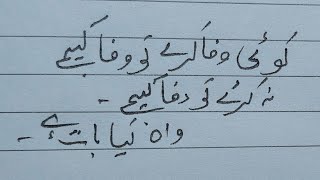 کوئی وفا کرے تو وفا کیجیے
نہ کرے تو دفا کیجیے ۔
واہ کیا بات ہے ۔